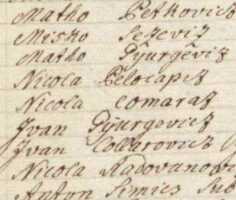 Matho Petkovich
Misko Sezeviz
Matho Gyurgeviz
Nicola Pelocapiz
Nicola Comaraz
Jvan Gyurgovicz
Jvan Collarovicz
Nicola Radovano
Anton Simics Sub